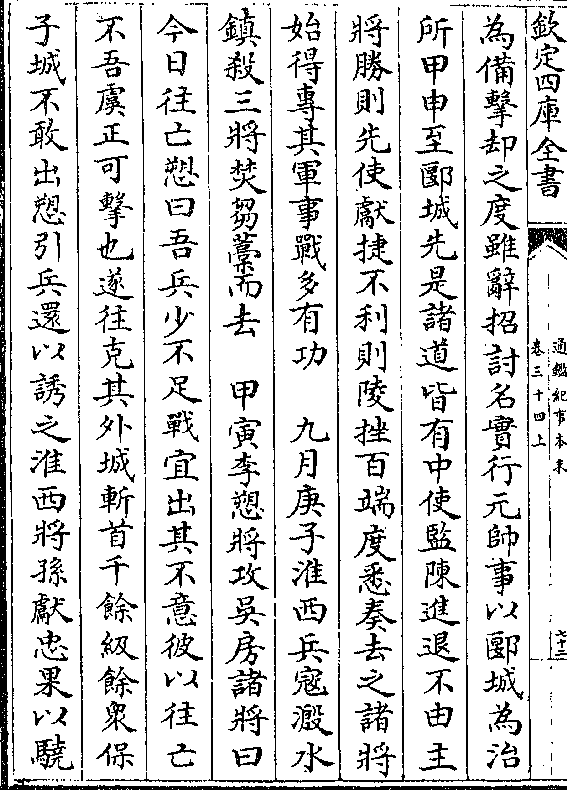 欽定四庫全書
通鑑紀事本末
卷三十四上
七十三
為備擊却之度雖辭招討名實行元帥事以郾城為治
所甲申至郾城先是諸道皆有中使監陳進退不由主
將勝則先使獻捷不利則陵挫百端度悉奏去之諸將
始得專其軍事戰多有功　九月庚子淮西兵寇溵水
鎮殺三將焚芻藁而去　甲寅李愬將攻吳房諸將曰
今日往亡愬曰吾兵少不足戰宜出其不意彼以往亡
不吾虞正可擊也遂往克其外城斬首千餘級餘衆保
子城不敢出愬引兵還以誘之淮西將孫獻忠果以驍